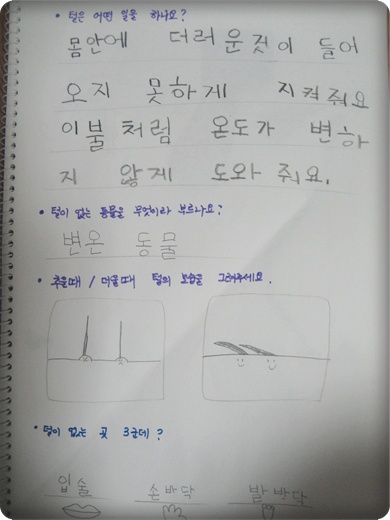 • 털은 어떤 일을 하나요?
몸안에 더러운것이 들어
오지 못하게 지켜줘요
이불처럼 온도가 변하
지 않게 도와줘요.
• 털이 없는 동물을 무엇이라 부르나요?
변온 동물
• 추울때 / 더울때 털의 모습을 그려주세요.
• 털이 없는 곳 3군데?
입술 손바닥 발바닥